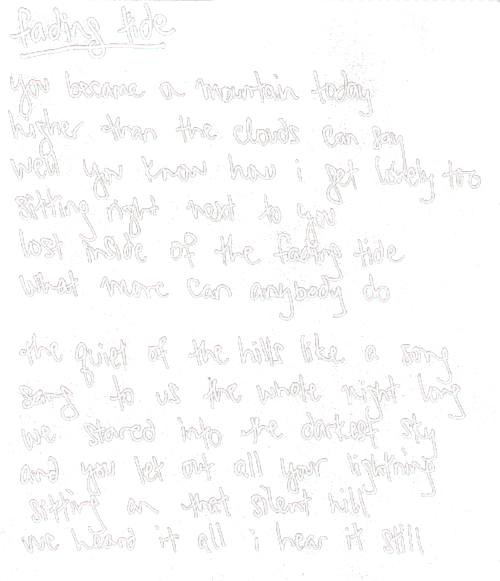 fading tide
you became a mountain today
higher than the clouds can say
well you know how i get lonely too
sitting right next to you
lost inside of the fading tide
what more can anybody do
the quiet of the hills like a song
sang to us the whole night long
we stared into the darkest sky
and you let out all your lightning
sitting on that silent hill
we heard it all i hear it still